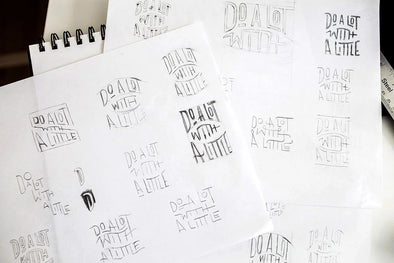 DO A LOT
WITH
A LITTLE
DO A LOT
WITH
A LITTLE
DO A LOT
WITH
A LITTLE
DO A LOT
WITH
A LITTLE
DO A LOT
WITH
A LITTLE
DO A LOT
WITH
A LITTLE
DO A LOT
WITH
A LITTLE
DO A LOT
WITH
A LITTLE
DO A LOT
WITH
A LITTLE
DO A LOT
WITH
A LITTLE
DO A LOT
WITH
A LITTLE
DO A LOT
WITH
A LITTLE
DO A LOT
WITH
A LITTLE
DO A LOT
WITH
A LITTLE